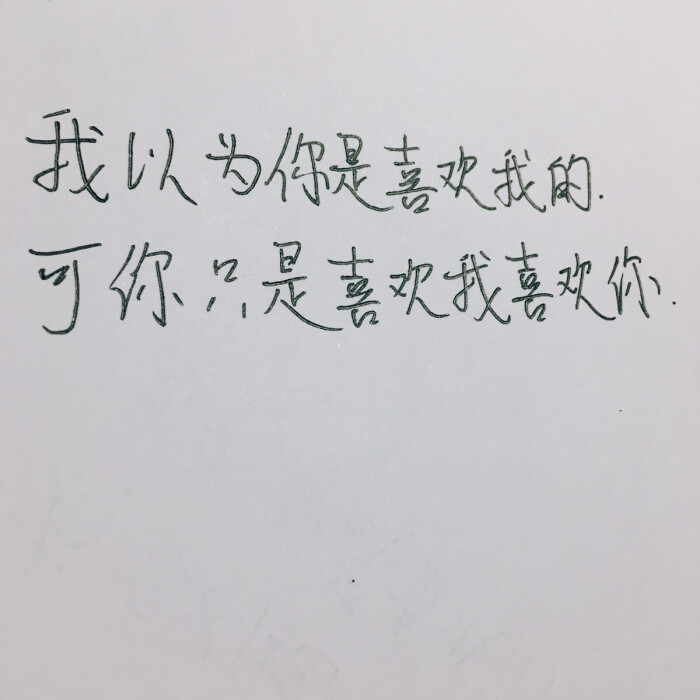 我以为你是喜欢我的.
可你只是喜欢我喜欢你.